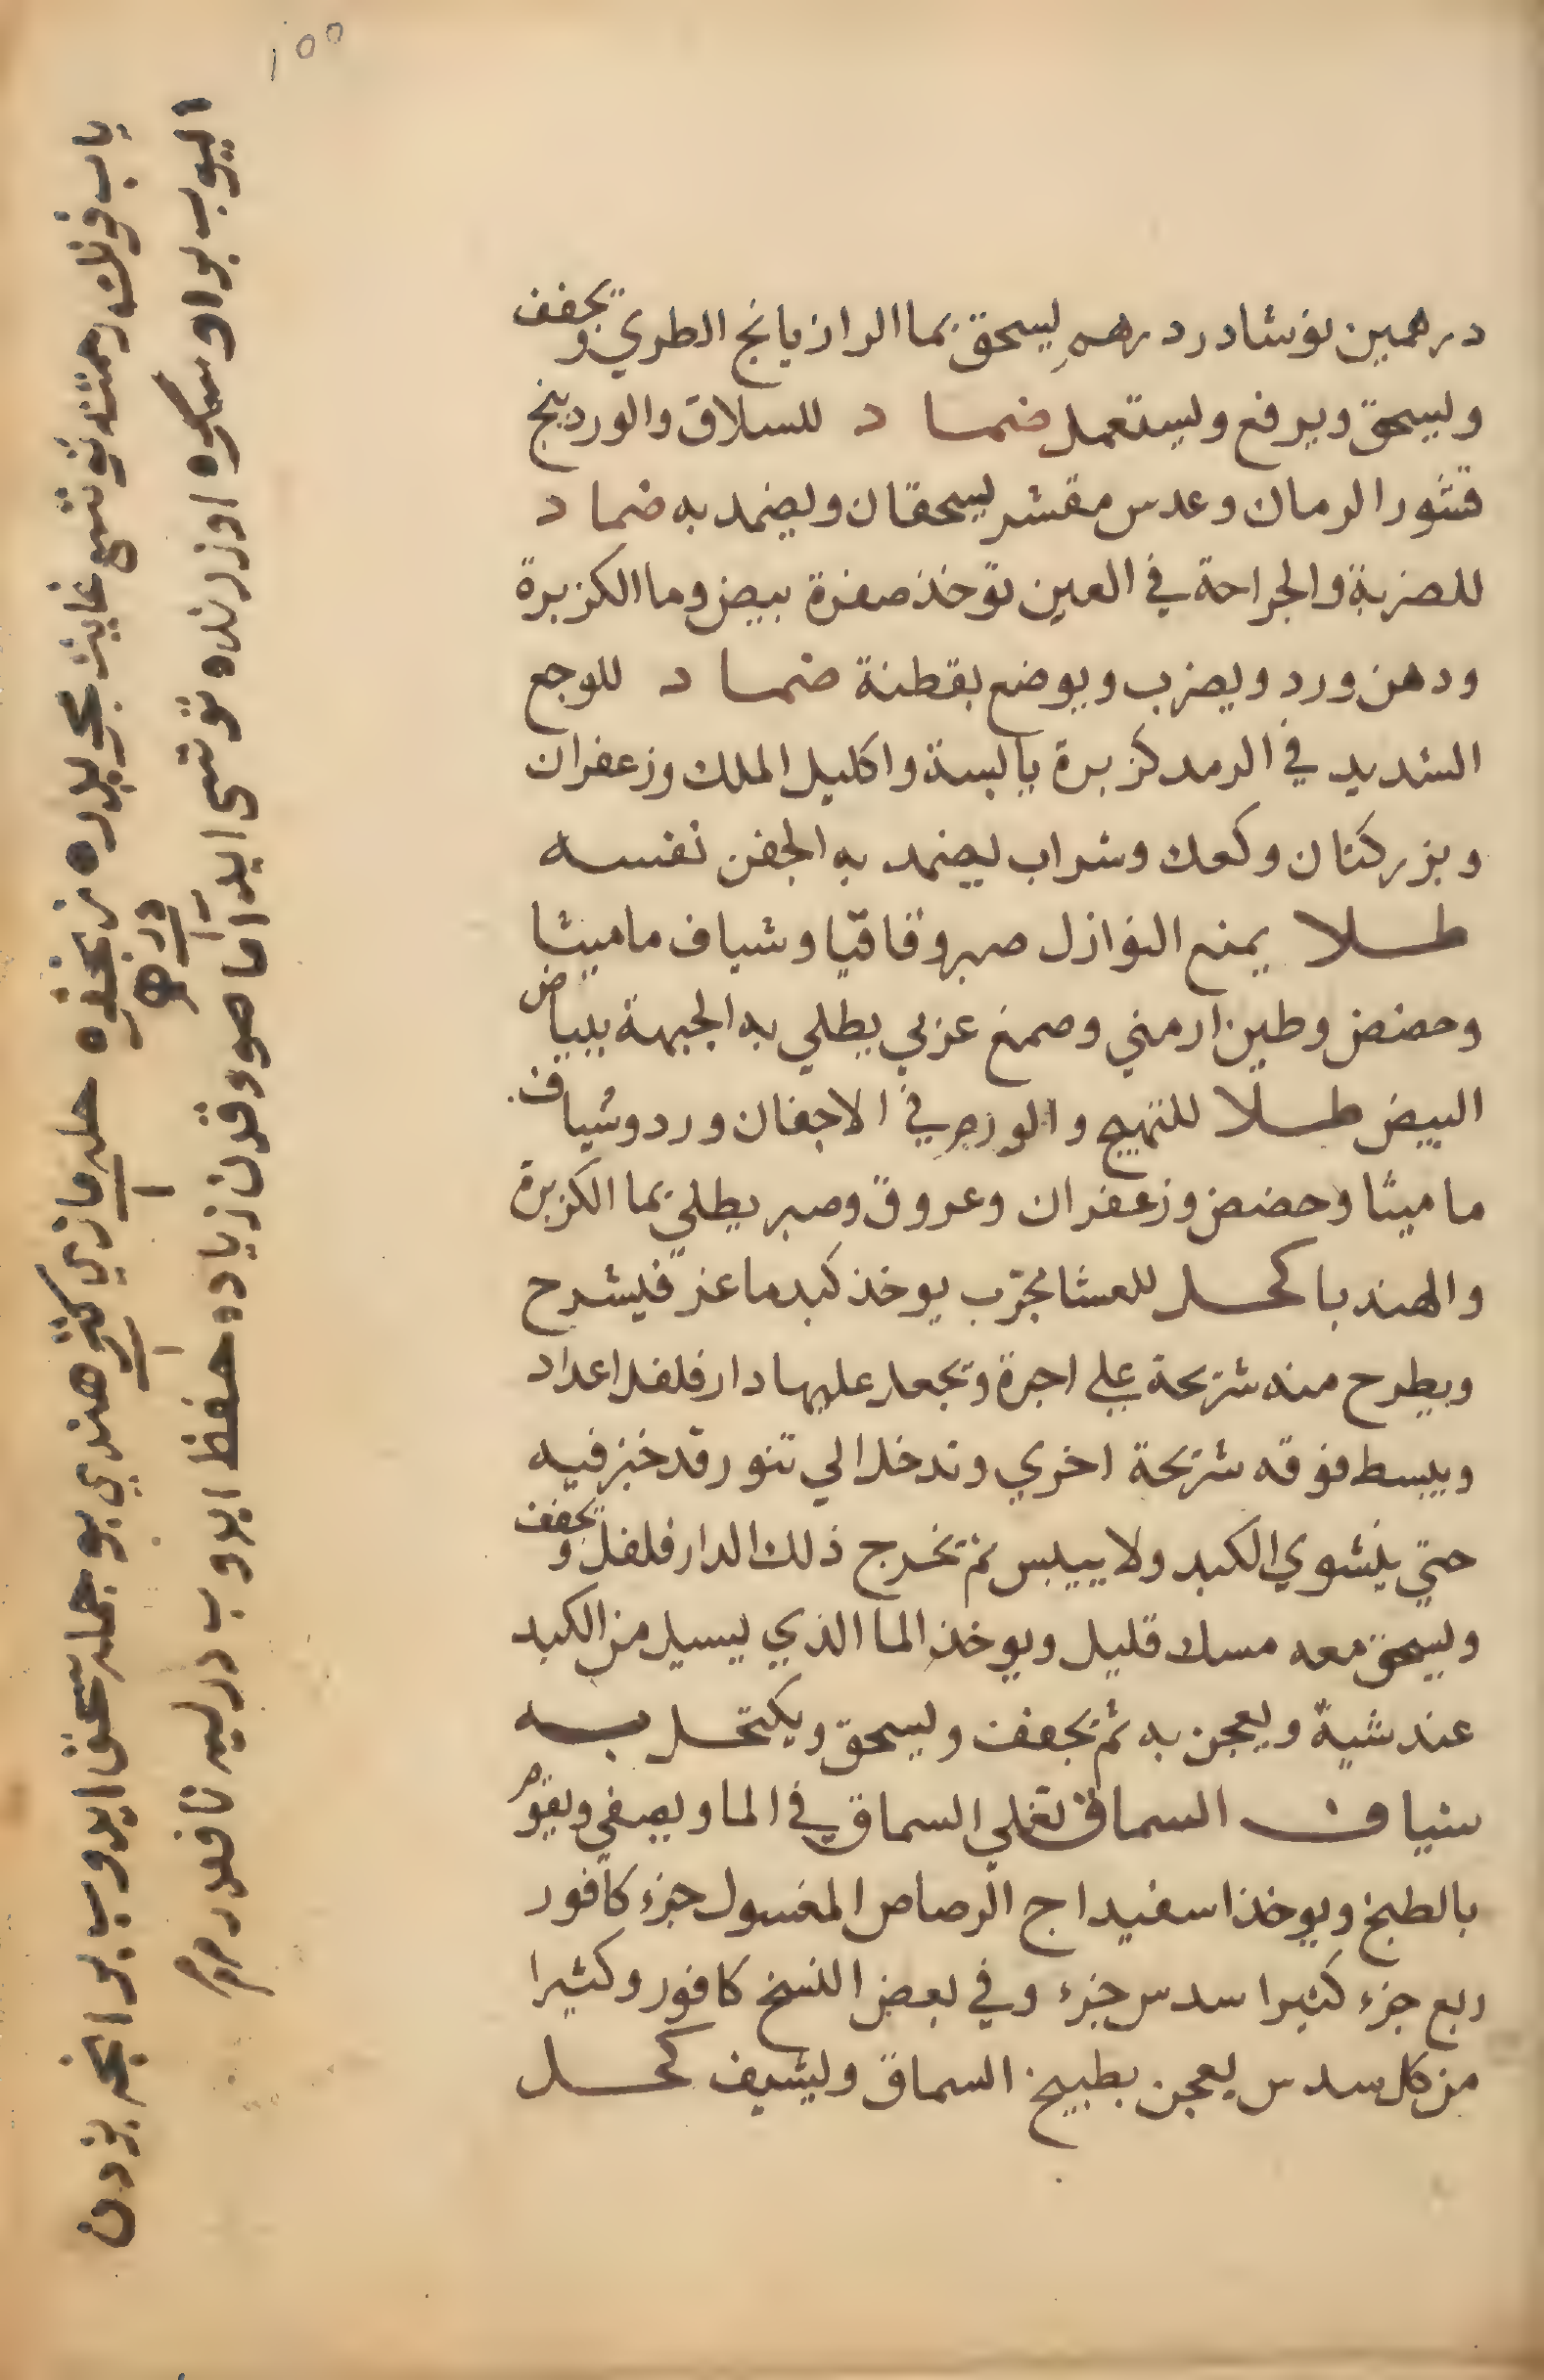 ١٥٥
درهمين نوشادر درهم يسحق بما الرازيانج الطري ويجفف
ويسحق ويرفع ويستعمل ضماد للسلاق والوردينج
قشور الرمان وعدس مقشر يسحقان ويضمد به ضماد
للضربة والجراحة في العين توخذ صفرة بيض وما الكزبرة
ودهن ورد ويضرب ويوضع بقطنة ضماد للوجع
الشديد في الرمد كزبرة يابسة واكليل الملك وزعفران
وبزر كتان وكعك وشراب يضمد به الجفن نفسه
طلا يمنع النوازل صبر وقاقيا وشياف ماميثا
وحضض وطين ارمني وصمغ عربي يطلي به الجبهة ببياض
البيض طلا للتهيج والورم في الاجفان ورد وشياف
ماميثا وحضض وزعفران وعروق وصبر يطلي بما الكزبرة
والهندبا كحل للعشا مجرّب يوخذ كبد ماعز فيشرح
ويطرح منه شريحة علي اجرة وتجعل عليها دارفلفل اعداد
ويبسط فوقه شريحة اخري وتدخل الي تنور قد خبز فيه
حتي ينشوي الكبد ولا ييبس ثم تخرج ذلك الدارفلفل ويجفف
ويسحق معه مسك قليل ويوخذ الما الذي يسيل من الكبد
عند شيه ويعجن به ثم يجفف ويسحق ويكتحل به
شياف السماق تغلي السماق في الما ويصفي ويقوم
بالطبخ ويوخذ اسفيداج الرصاص المغسول جزء كافور
ربع جزء كثيرا سدس جزء وفي بعض النسخ كافور وكثيرا
من كل سدس يعجن بطبيخ السماق ويشيف كحل
باب فرنك رحمتنه توتسى غايت مجربدر حله مازي هندي بو جمله سحق ايدوب بو انجه بزدن
اليوب بو اوزرنده توتسى ايد اما صووقدن زياده حفظ ايدوب درليه نافعدر
درهم